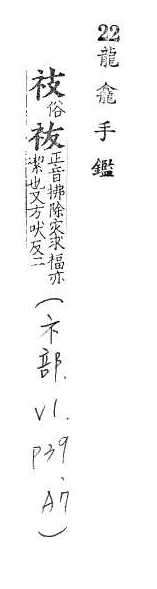 22龍龕手鑑
祓俗祓正音拂除灾求福亦潔也又方吠反二(礻部.V1.P39、A7)